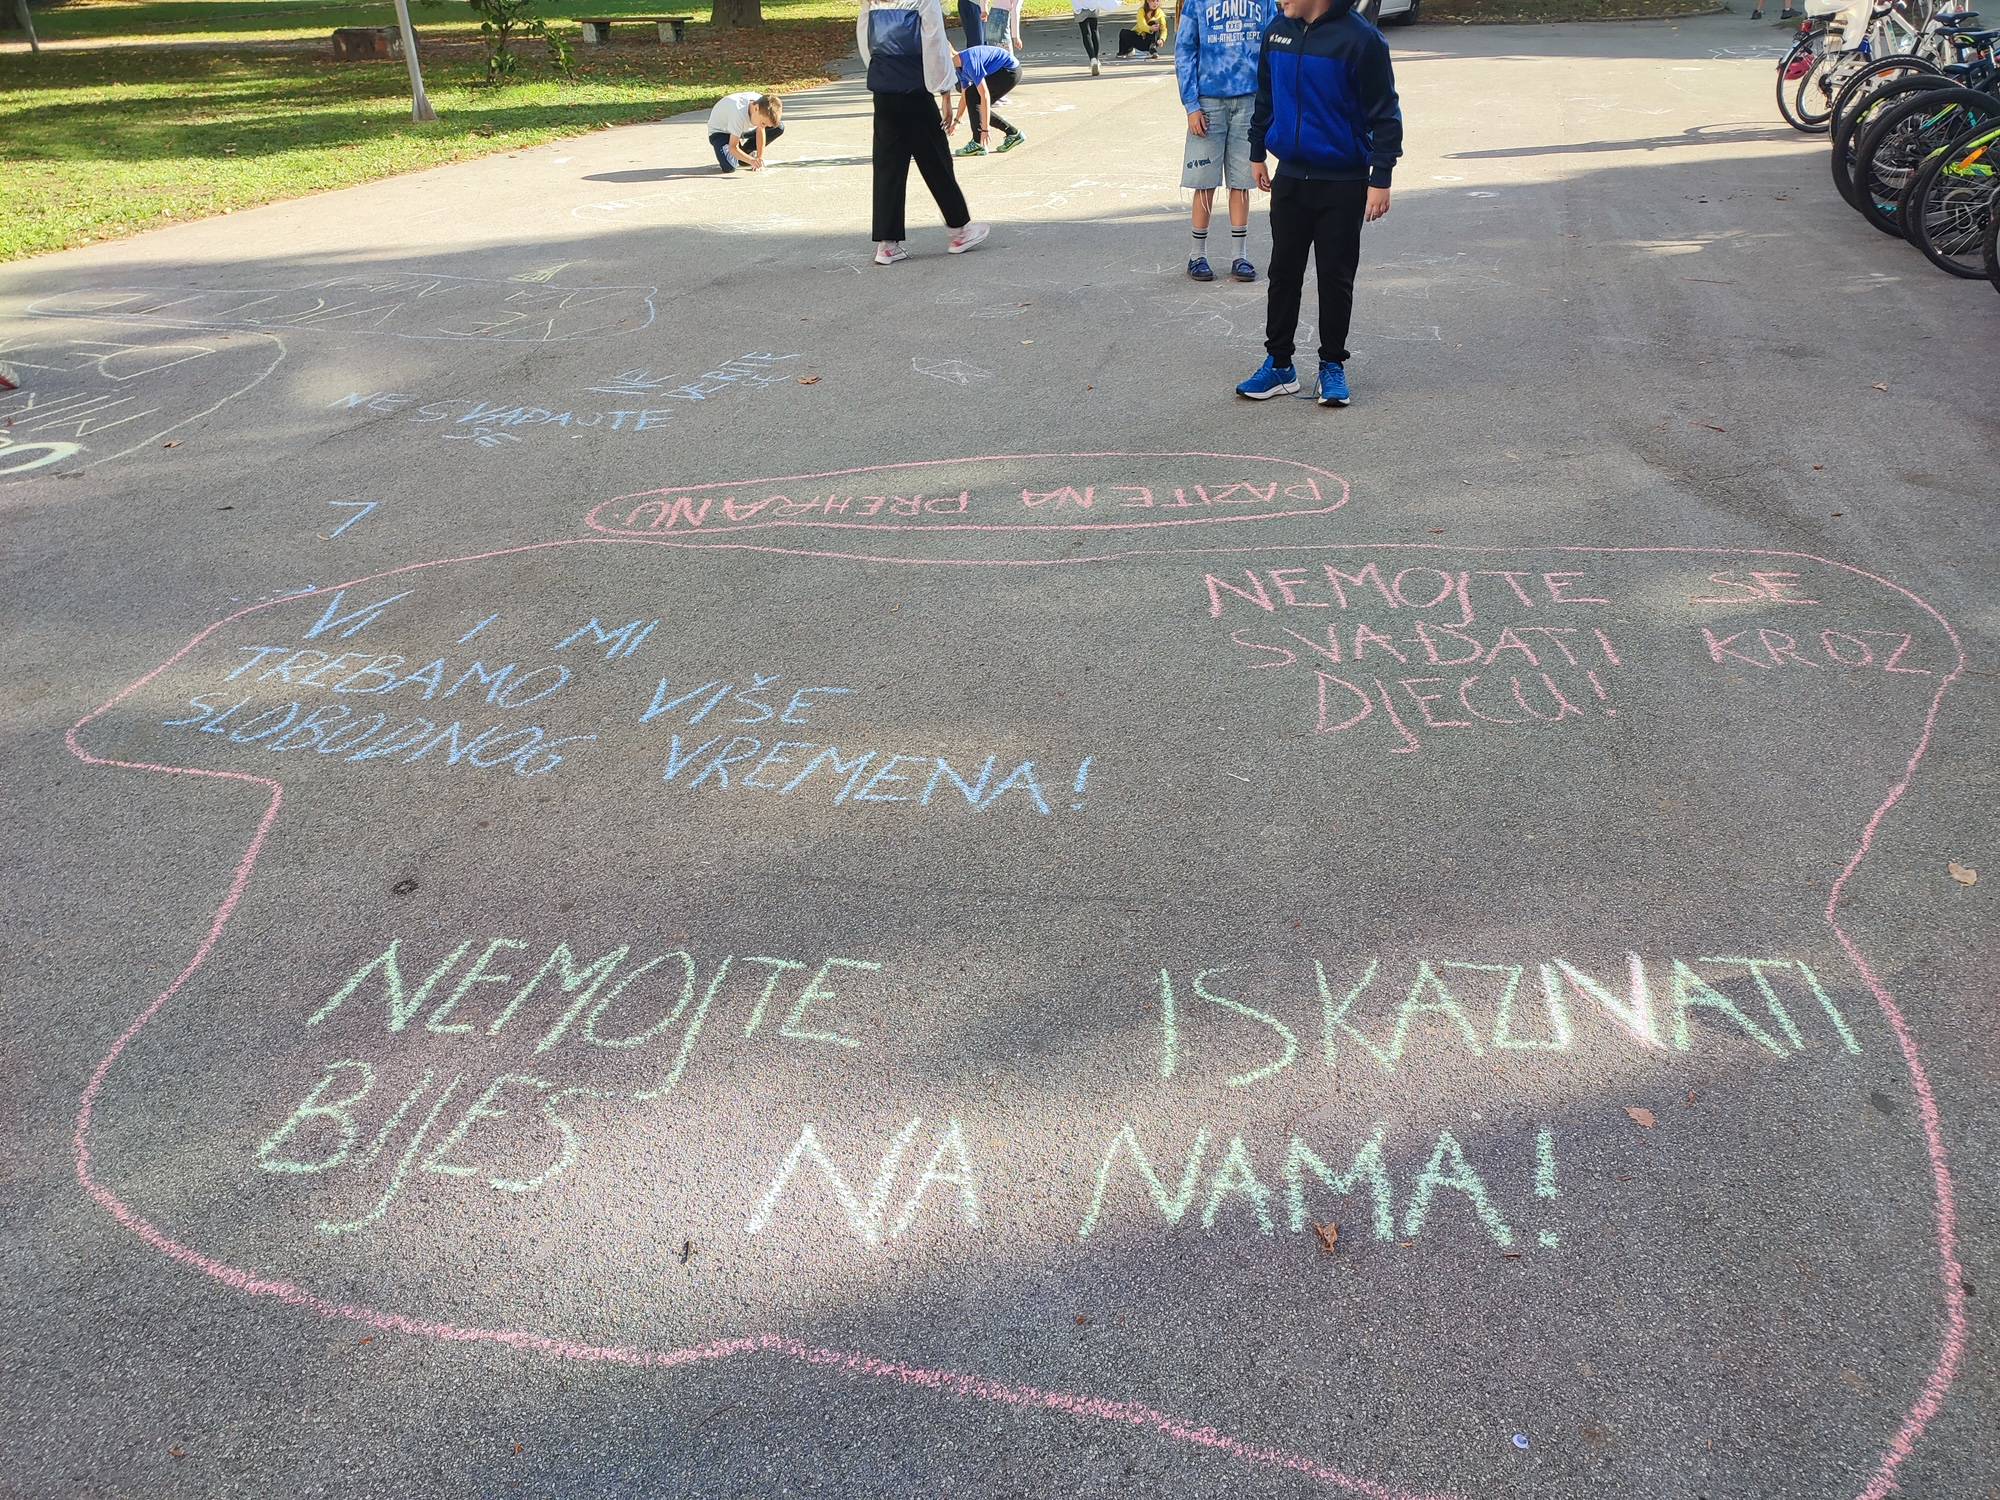 PEANUTS
NON-ATHLETIC DEPT.
NE DERITE
SE
NE SVAĐAJTE
SE
PAZITE NA PREHRANU
7
VI I MI
TREBAMO VIŠE
SLOBODNOG VREMENA!
NEMOJTE SE
SVAĐATI KROZ
DJECU!
NEMOJTE ISKAZIVATI
BIJES NA NAMA!